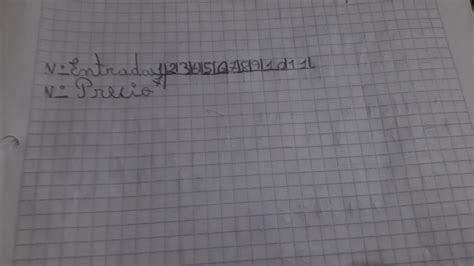 N- Entradas 1 2 3 4 5 6 7 8 9 10 11
N- Precio